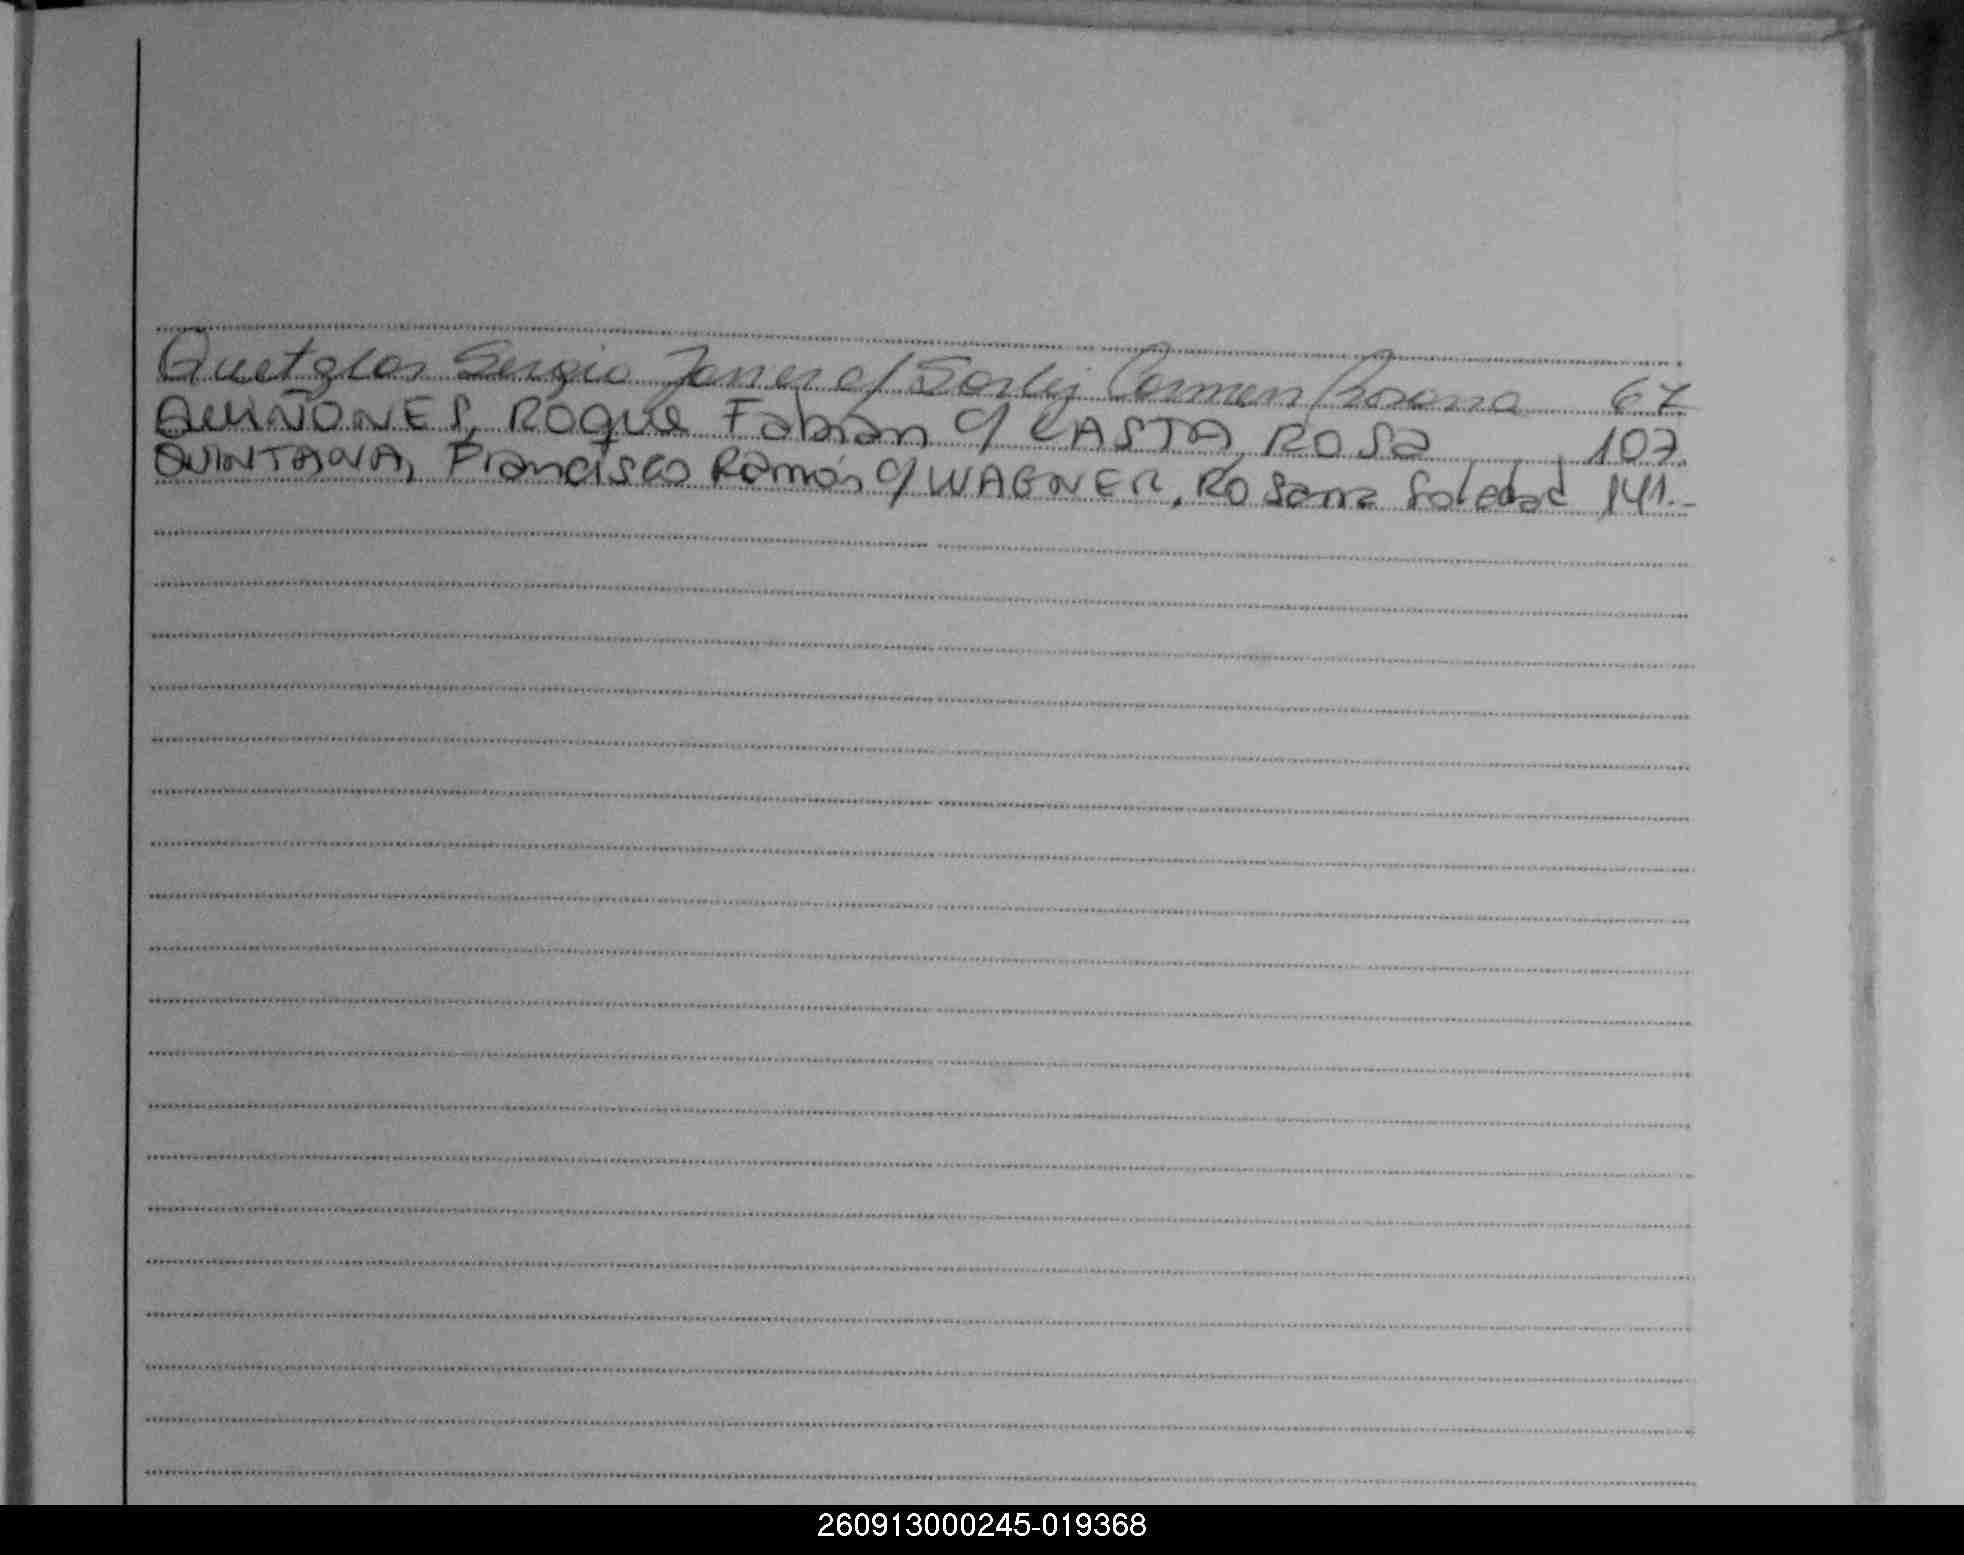 Quetglas Sergio Javier c/ Sarlij Carmen Rosana 67
QUIÑONES, ROQUE Fabián c/ CASTA, ROSA 107.
QUINTANA, Francisco Ramón c/ WAGNER, Rosana Soledad 141.-
260913000245-019368